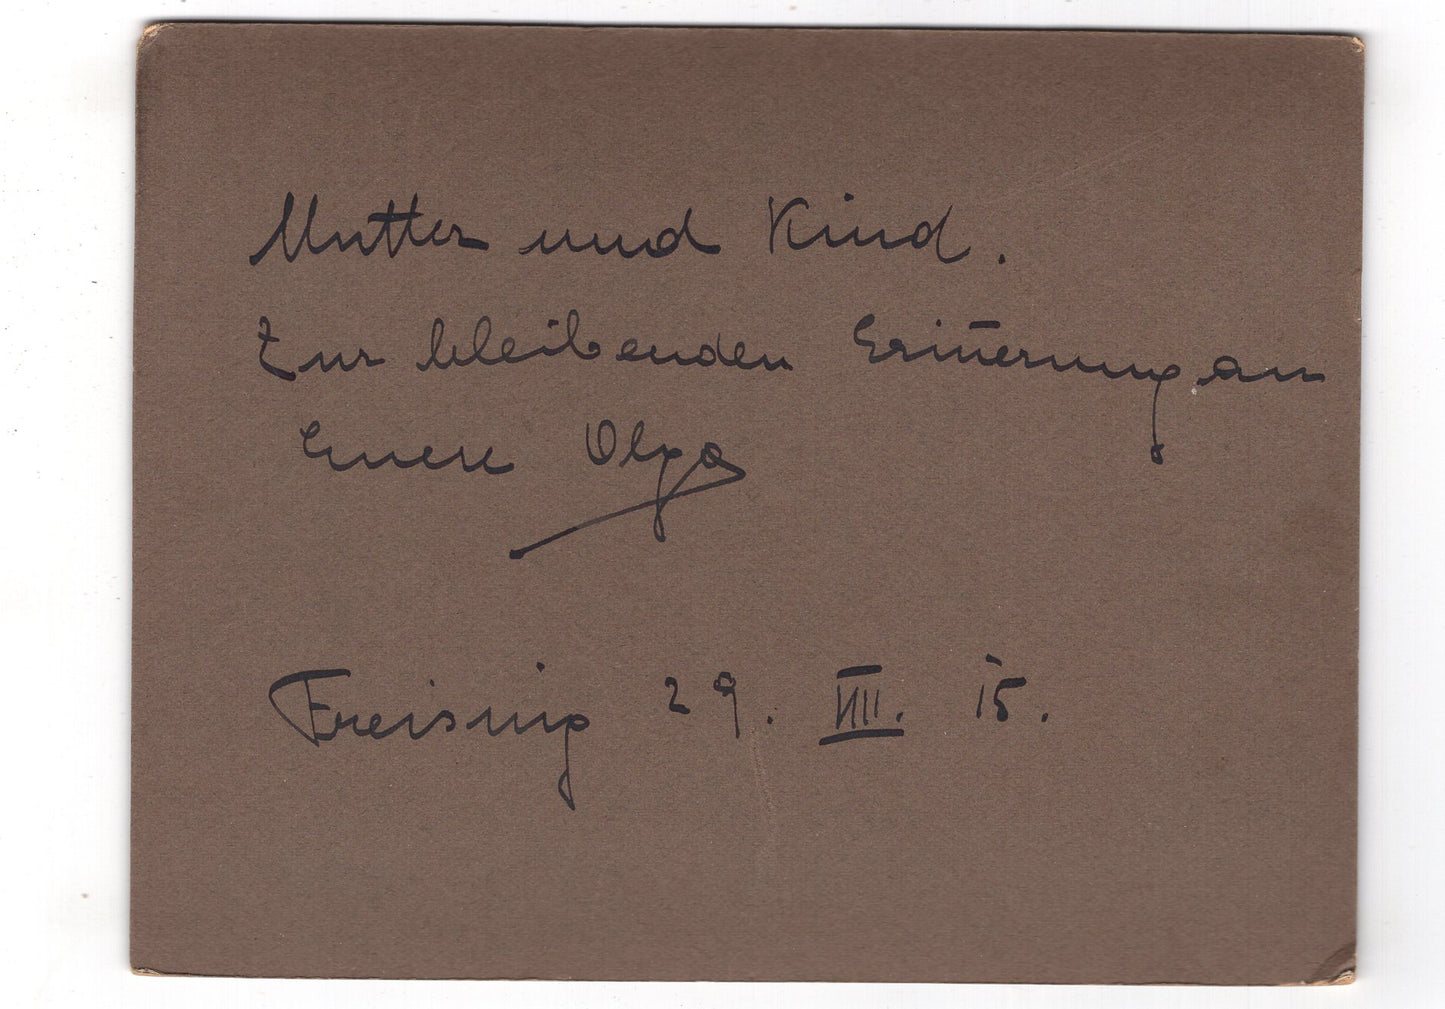 Mutter und Kind.
Zur bleibenden Erin̄erung an
Euere Olga
Freising 29. VIII. 15.